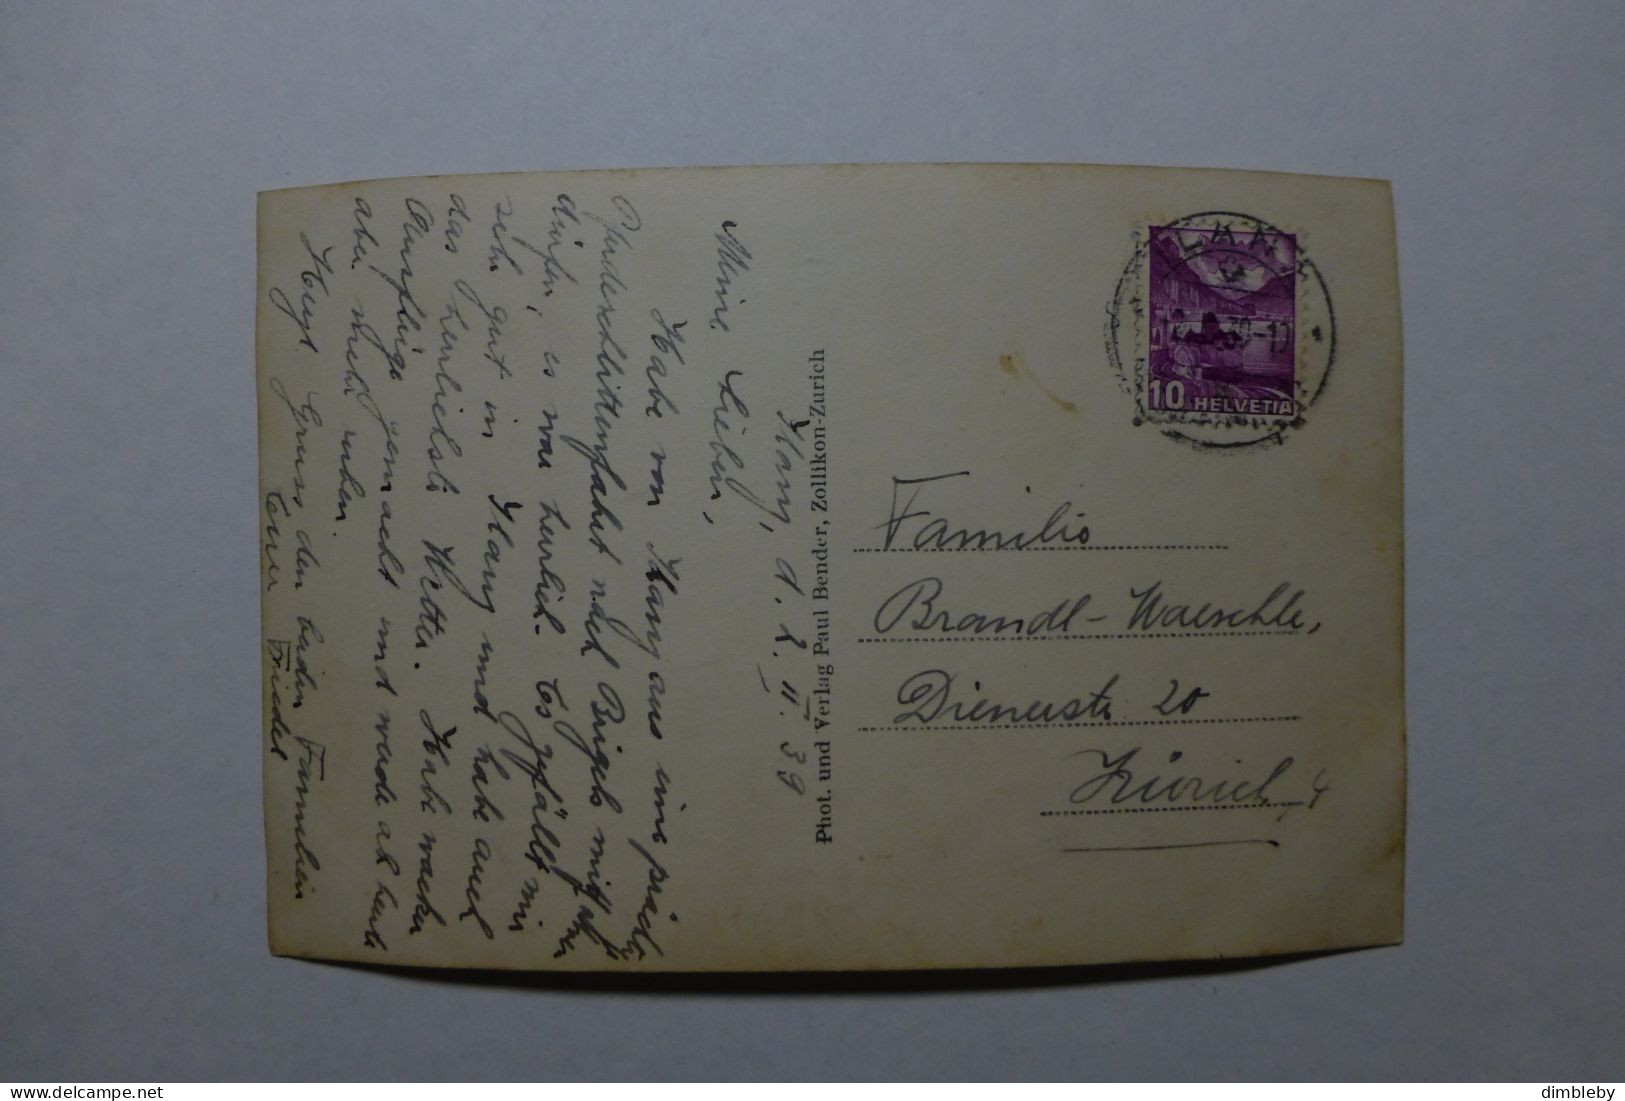 Ilanz, d. 2. II. 39
Meine Lieben,
Habe von Ilanz aus eine prächt.
Pferdeschlittenfahrt nach Brigels mitf.
dürfen, es war herrlich. Es gefällt mir
sehr gut in Ilanz und habe auch
das herrlichste Wetter. Habe wacker
Ausflüge gemacht und werde ab heute
aber mehr ruhen.
Herzl. Gruss den beiden Familien
Eure Friedel
Phot. und Verlag Paul Bender, Zollikon-Zürich
ILANZ
10 HELVETIA
Familie
Brandl-Waeschle,
Dienerstr. 20
Zürich, 4
delcampe.net
dimbleby